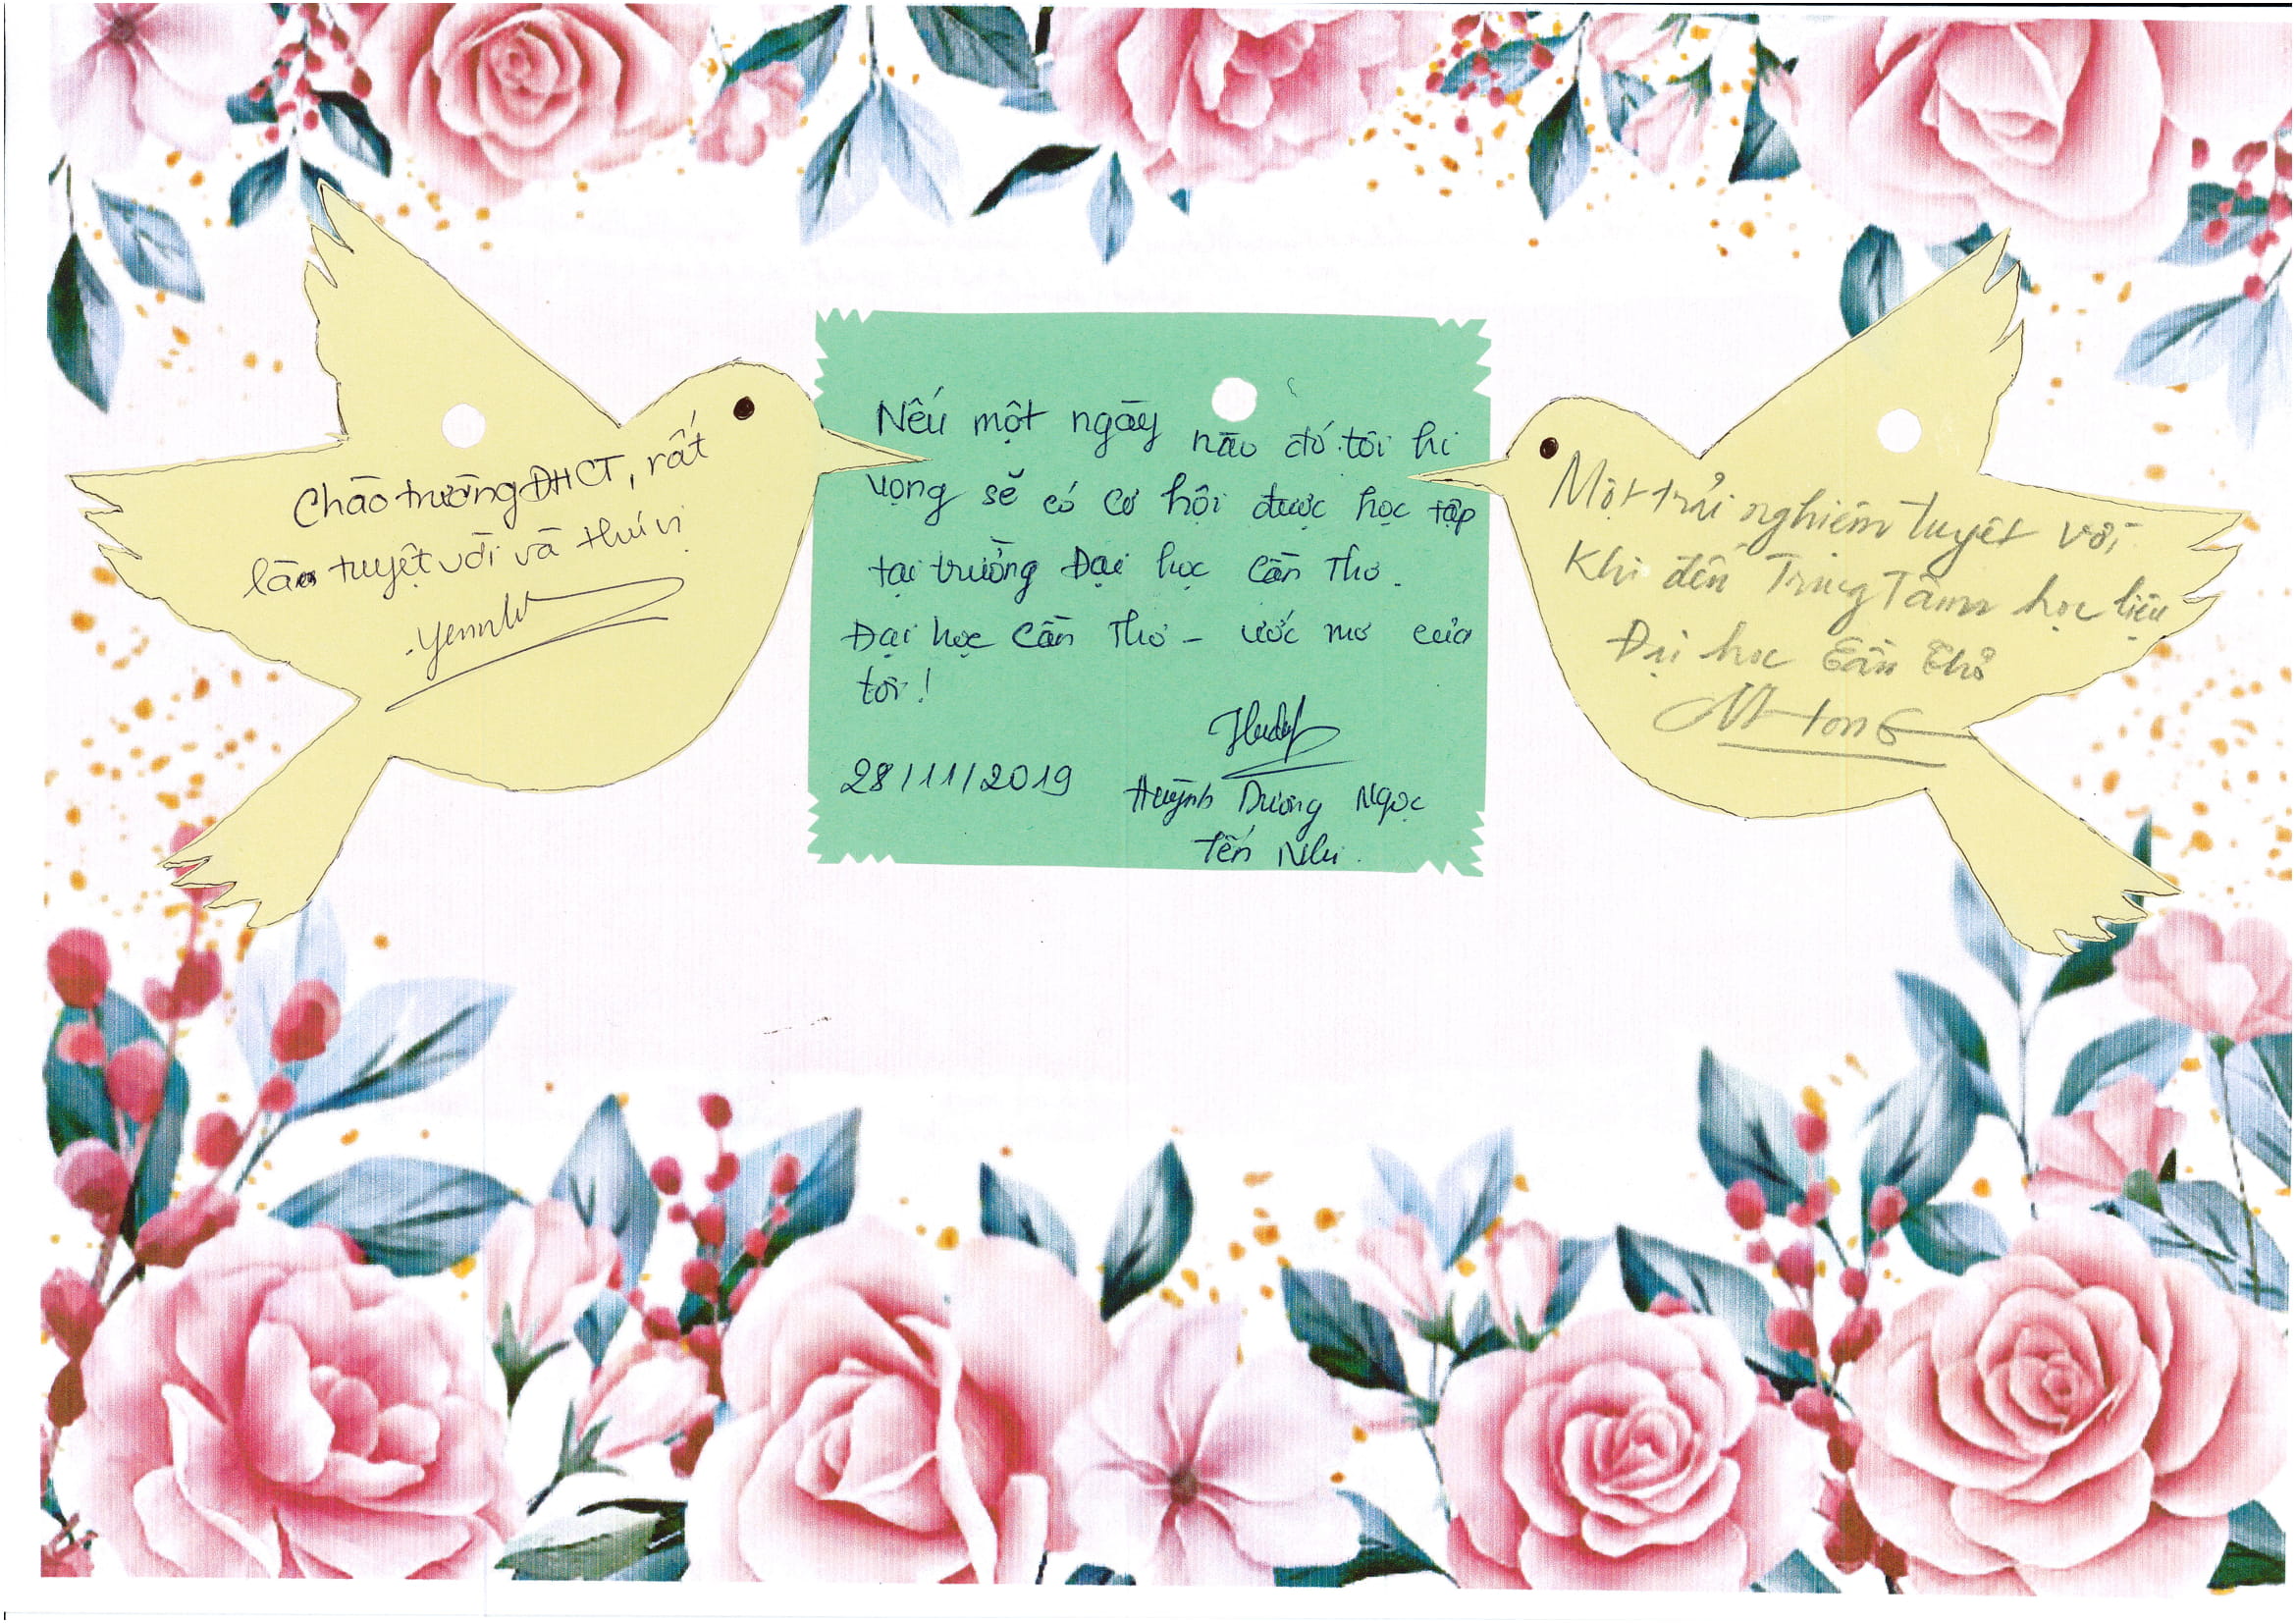 Chào trường ĐHCT, rất
là tuyệt vời và thú vị
Nếu một ngày nào đó tôi hi
vọng sẽ có cơ hội được học tập
tại trường Đại học Cần Thơ.
Đại học Cần Thơ - ước mơ của
tôi!
28/11/2019
Huỳnh Dương Ngọc
Yến Nhi
Một trải nghiệm tuyệt vời
Khi đến Trung Tâm học liệu
Đại học Cần Thơ